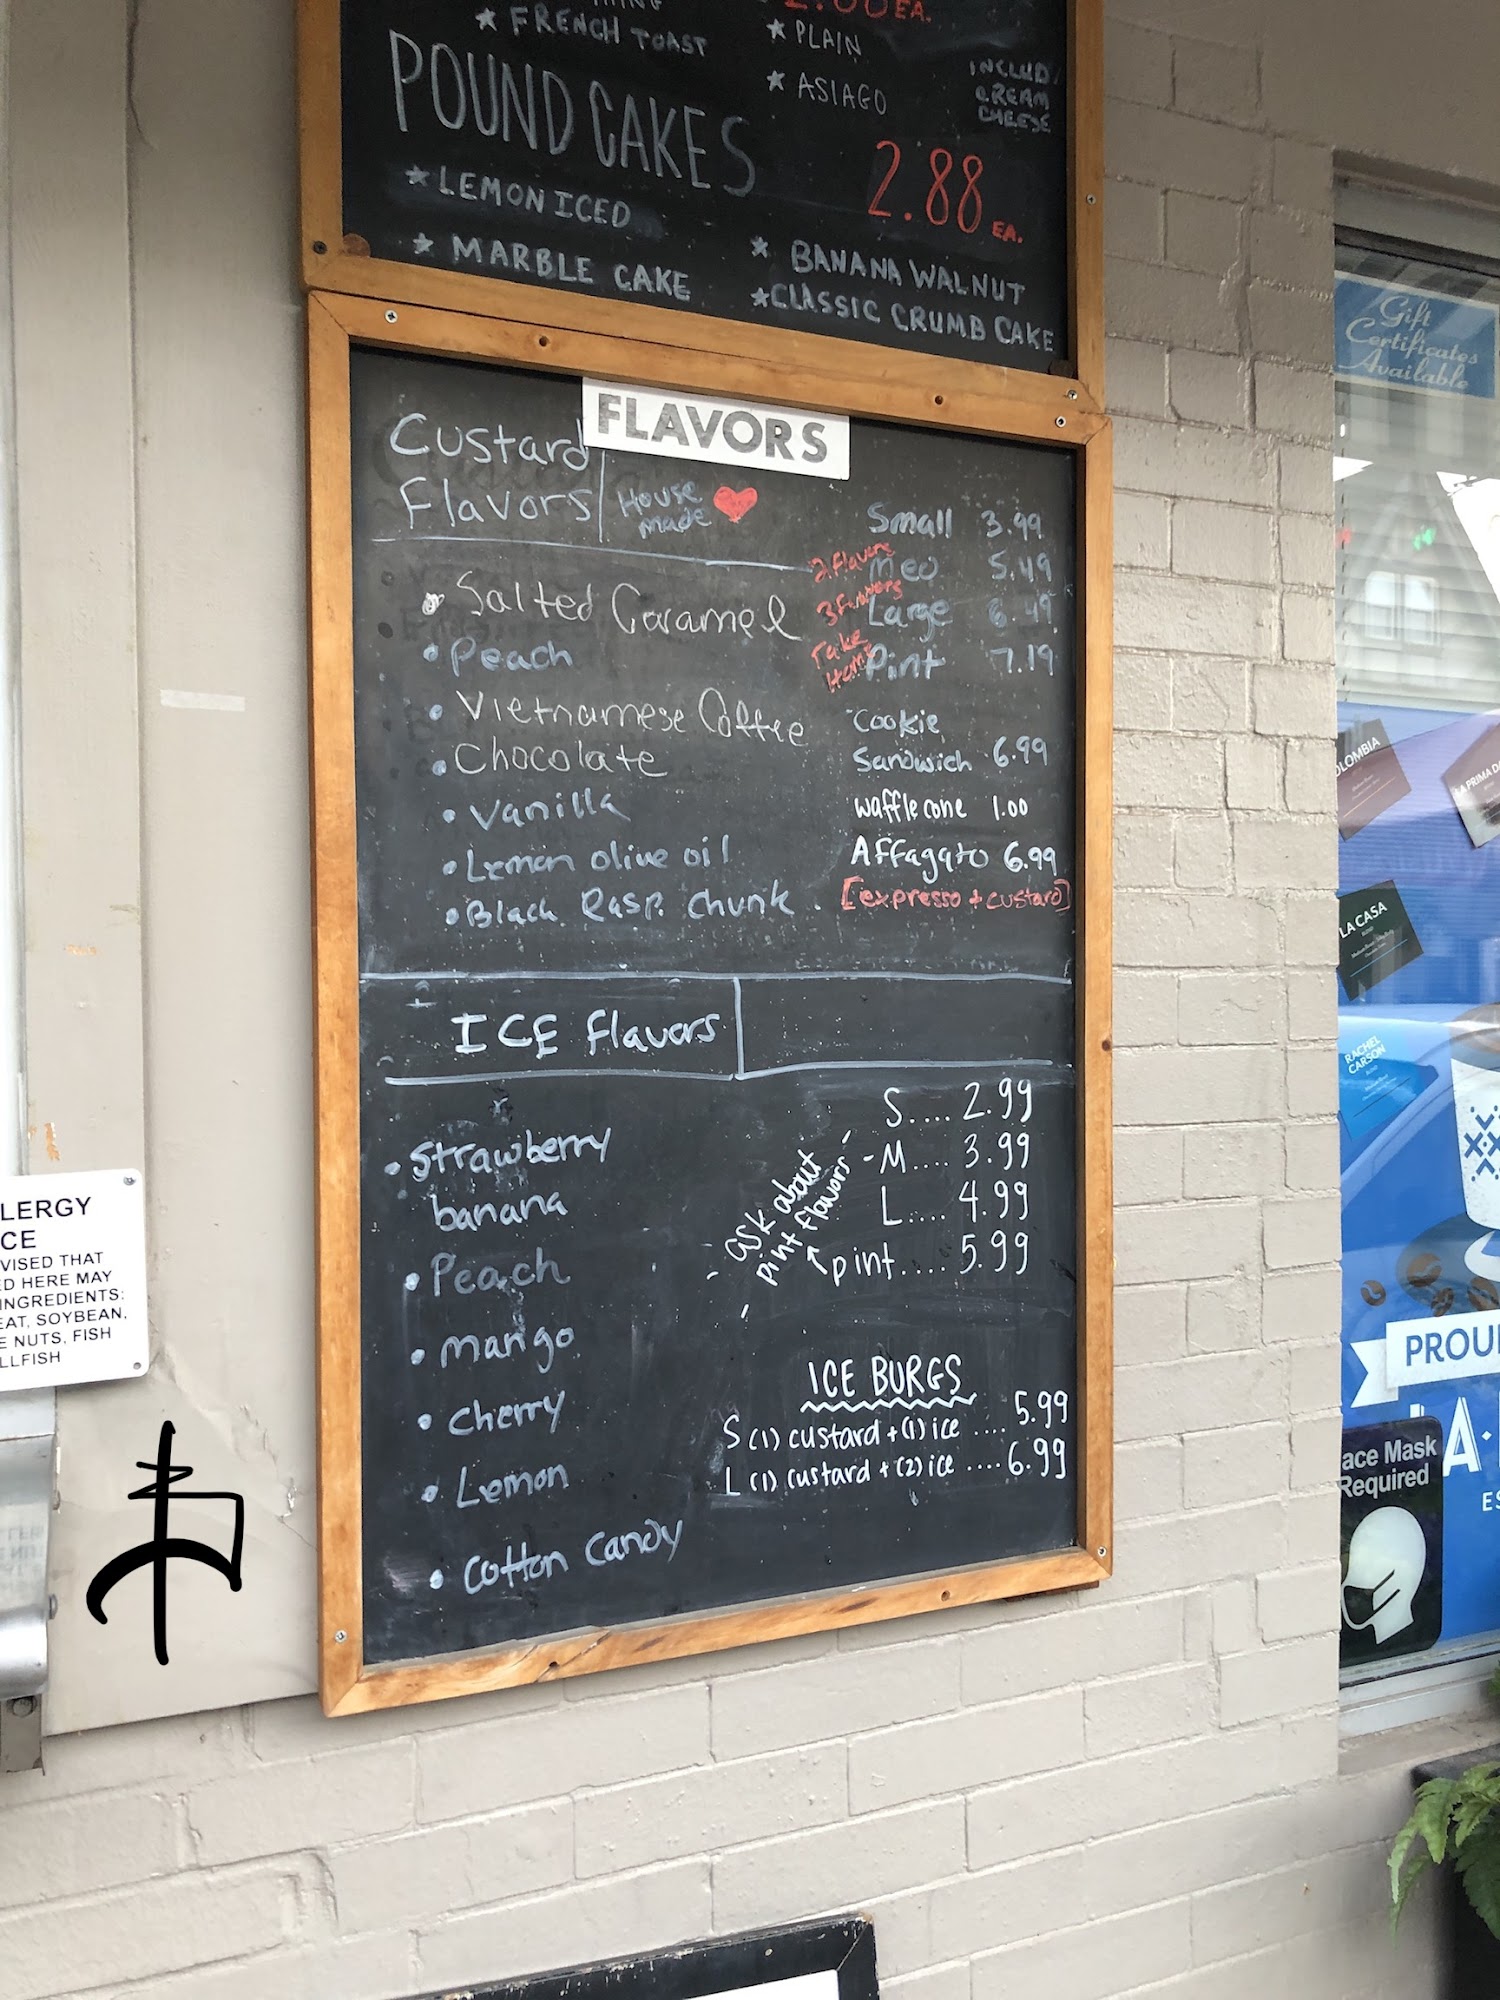 2.00 EA.
★ FRENCH TOAST
★ PLAIN
★ ASIAGO
INCLUD
CREAM
CHEESE
POUND CAKES
2.88 EA.
★ LEMON ICED
★ MARBLE CAKE
★ BANANA WALNUT
★ CLASSIC CRUMB CAKE
FLAVORS
Custard
Flavors
House
made
Small 3.99
2 Flavors Med 5.49
3 Flavors Large 6.49
Take
Home Pint 7.19
• Salted Caramel
• Peach
• Vietnamese Coffee
• Chocolate
• Vanilla
• Lemon olive oil
• Black Rasp. Chunk
Cookie
Sandwich 6.99
waffle cone 1.00
Affagato 6.99
[expresso + custard]
ICE Flavors
• Strawberry
banana
• Peach
• mango
• cherry
• Lemon
• cotton candy
S.... 2.99
M.... 3.99
L.... 4.99
pint.... 5.99
ask about
pint flavors
ICE BURGS
S (1) custard + (1) ice .... 5.99
L (1) custard + (2) ice .... 6.99
LERGY
CE
VISED THAT
D HERE MAY
INGREDIENTS:
EAT, SOYBEAN,
E NUTS, FISH
LLFISH
Gift
Certificates
Available
OLOMBIA
LA PRIMA
LA CASA
RACHEL
CARSON
PROU
LA
ace Mask
Required